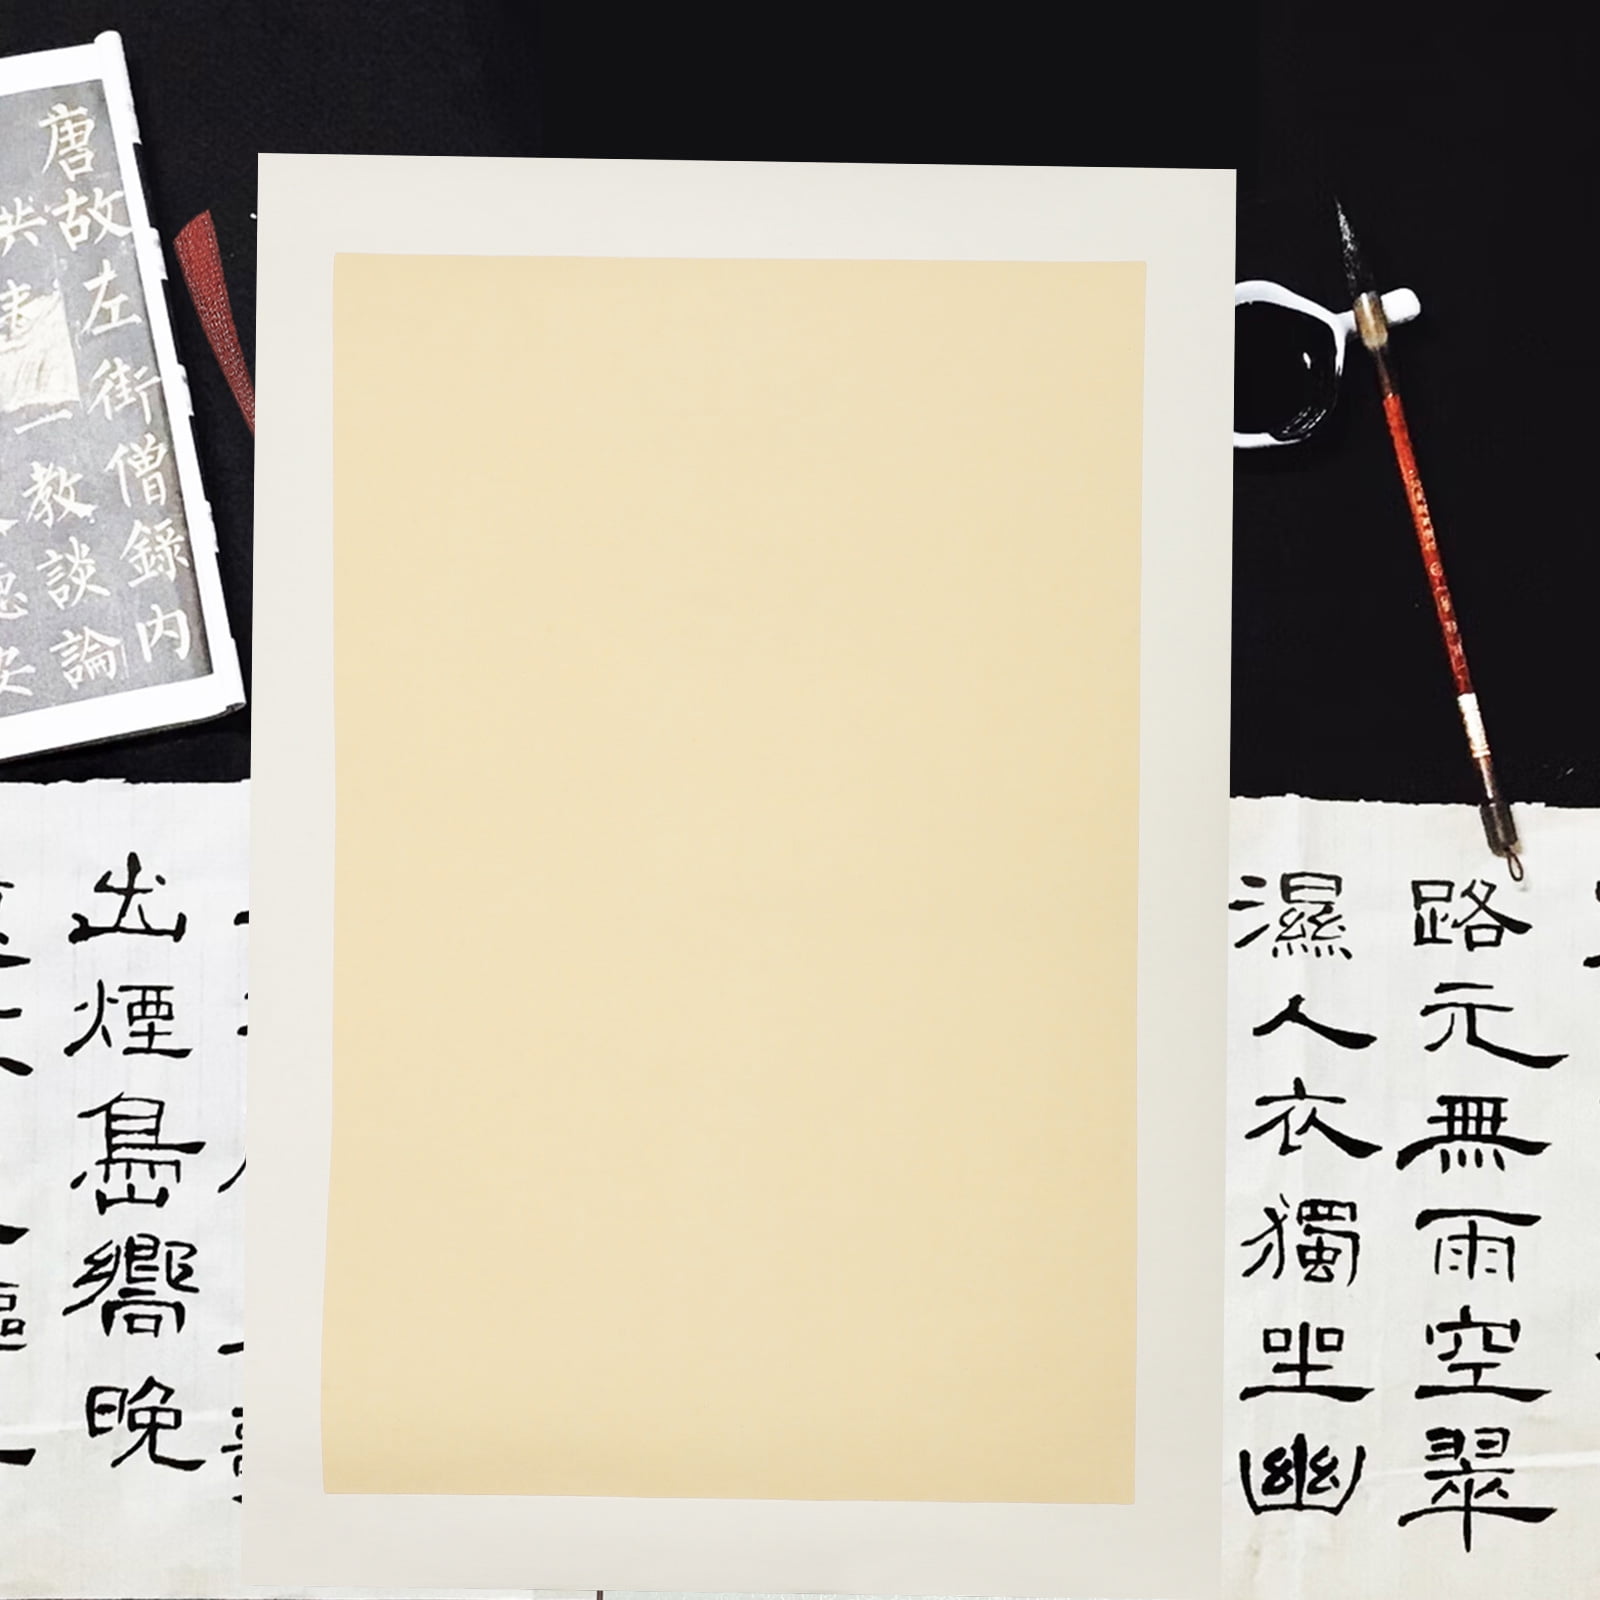 唐故左街僧錄內
教談論
安
路元無雨空翠
濕人衣獨坐幽
出煙嶌嚮晚